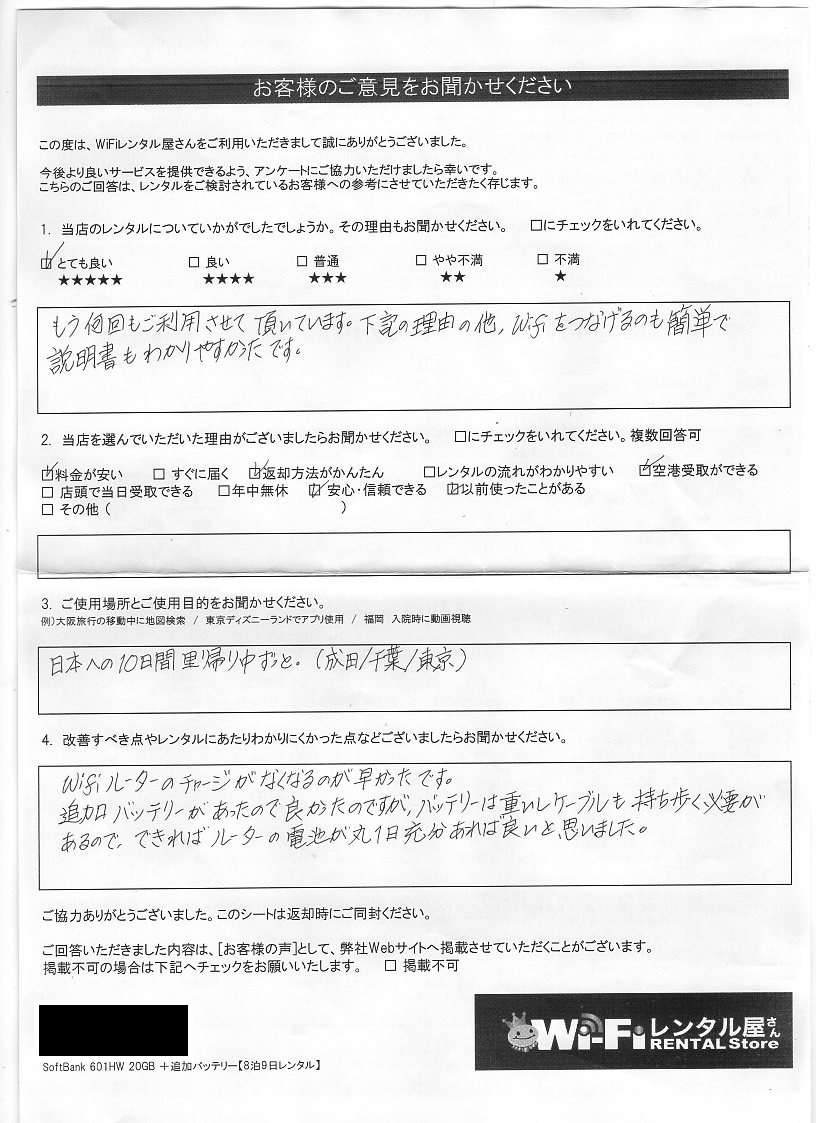 お客様のご意見をお聞かせください
この度は、WiFiレンタル屋さんをご利用いただきまして誠にありがとうございました。
今後より良いサービスを提供できるよう、アンケートにご協力いただけましたら幸いです。
こちらのご回答は、レンタルをご検討されているお客様への参考にさせていただきたく存じます。
1. 当店のレンタルについていかがでしたでしょうか。その理由もお聞かせください。 □にチェックをいれてください。
☑とても良い □ 良い □ 普通 □ やや不満 □ 不満
★★★★★ ★★★★ ★★★ ★★ ★
もう何回もご利用させて頂いています。下記の理由の他、Wifiをつなげるのも簡単で
説明書もわかりやすかったです。
2. 当店を選んでいただいた理由がございましたらお聞かせください。 □にチェックをいれてください。複数回答可
☑料金が安い □ すぐに届く ☑返却方法がかんたん □レンタルの流れがわかりやすい ☑空港受取ができる
□ 店頭で当日受取できる □年中無休 ☑ 安心・信頼できる ☑以前使ったことがある
□ その他 ( )
3. ご使用場所とご使用目的をお聞かせください。
例)大阪旅行の移動中に地図検索 / 東京ディズニーランドでアプリ使用 / 福岡 入院時に動画視聴
日本への10日間里帰り中ずっと。(成田/千葉/東京)
4. 改善すべき点やレンタルにあたりわかりにくかった点などございましたらお聞かせください。
Wifiルーターのチャージがなくなるのが早かったです。
追加バッテリーがあったので良かったのですが、バッテリーは重いしケーブルも持ち歩く必要が
あるので、できればルーターの電池が丸1日充分あれば良いと思いました。
ご協力ありがとうございました。このシートは返却時にご同封ください。
ご回答いただきました内容は、[お客様の声]として、弊社Webサイトへ掲載させていただくことがございます。
掲載不可の場合は下記へチェックをお願いいたします。 □ 掲載不可
Wi-Fiレンタル屋さん
RENTAL Store
SoftBank 601HW 20GB +追加バッテリー【8泊9日レンタル】